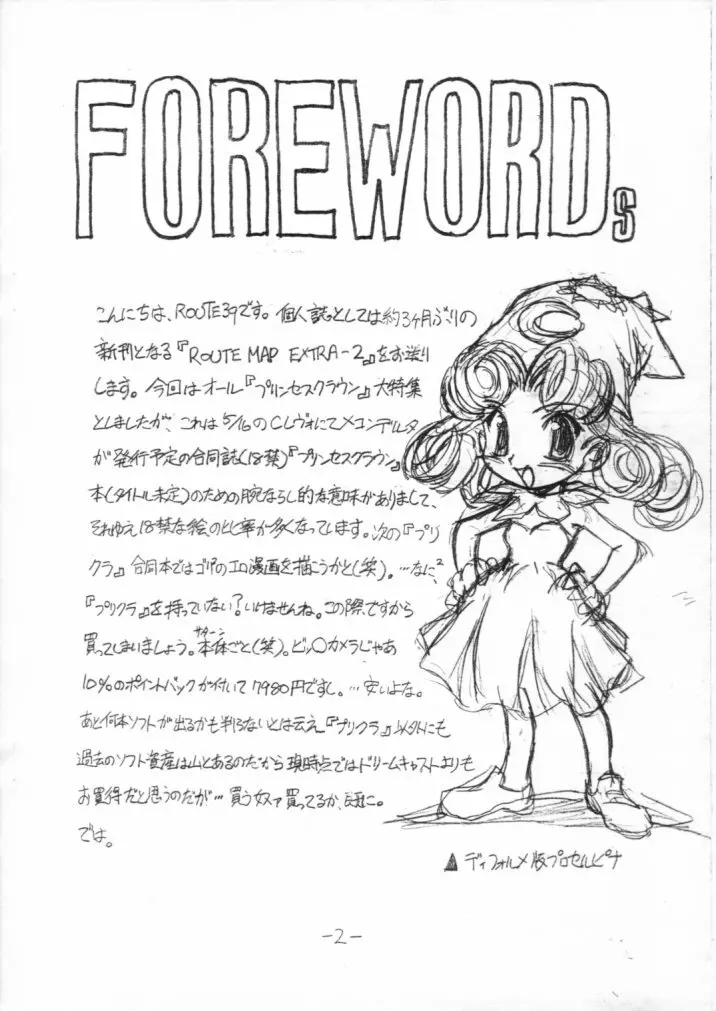 FOREWORDs
こんにちは、ROUTE39です。個人誌としては約3ヶ月ぶりの
新刊となる『ROUTE MAP EXTRA-2』をお送り
します。今回はオール『プリンセスクラウン』大特集
としましたが、これは5/16のCレヴォにてメコンデルタ
が発行予定の合同誌(18禁)『プリンセスクラウン』
本(タイトル未定)のための腕ならし的な意味がありまして、
それゆえ18禁な絵のとし率が多くなっています。次の『プリ
クラ』合同本ではゴリアのエロ漫画を描こうかと(笑)。…なに、2
『プリクラ』を持っていない?いけませんね。この際ですから
買ってしまいましょう。本体サターンごと(笑)。ビッ〇カメラじゃあ
10%のポイントバックが付いて7980円ですし。…安いよな。
あと何本ソフトが出るかも判らないとは云え『プリクラ』以外にも
過去のソフト資産は山とあるのだから現時点ではドリームキャストよりも
お買得だと思うのだが…買う奴ァ買ってるか、既に。
では。
▲ディフォルメ版プロセルピナ
-2-